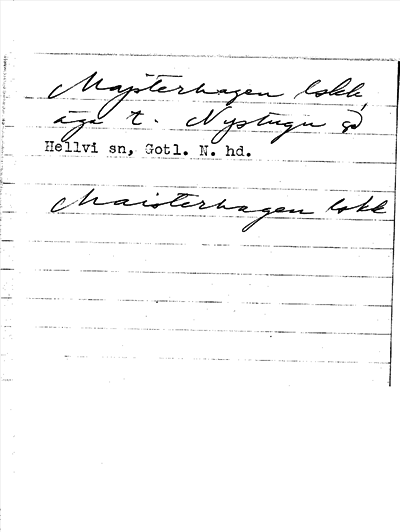 Majsterhagen lokk,
äga t. Nystugu gd
Hellvi sn, Gotl. N. hd.
Maisterhagen lokk